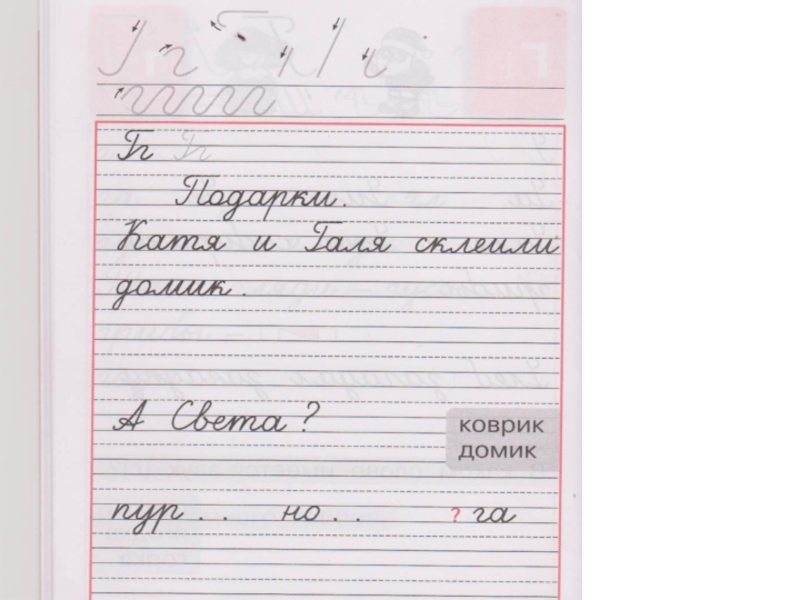 Гг Гг
Подарки.
Катя и Галя склеили
домик.
А Света?
коврик
домик
пур . . но . . ? га